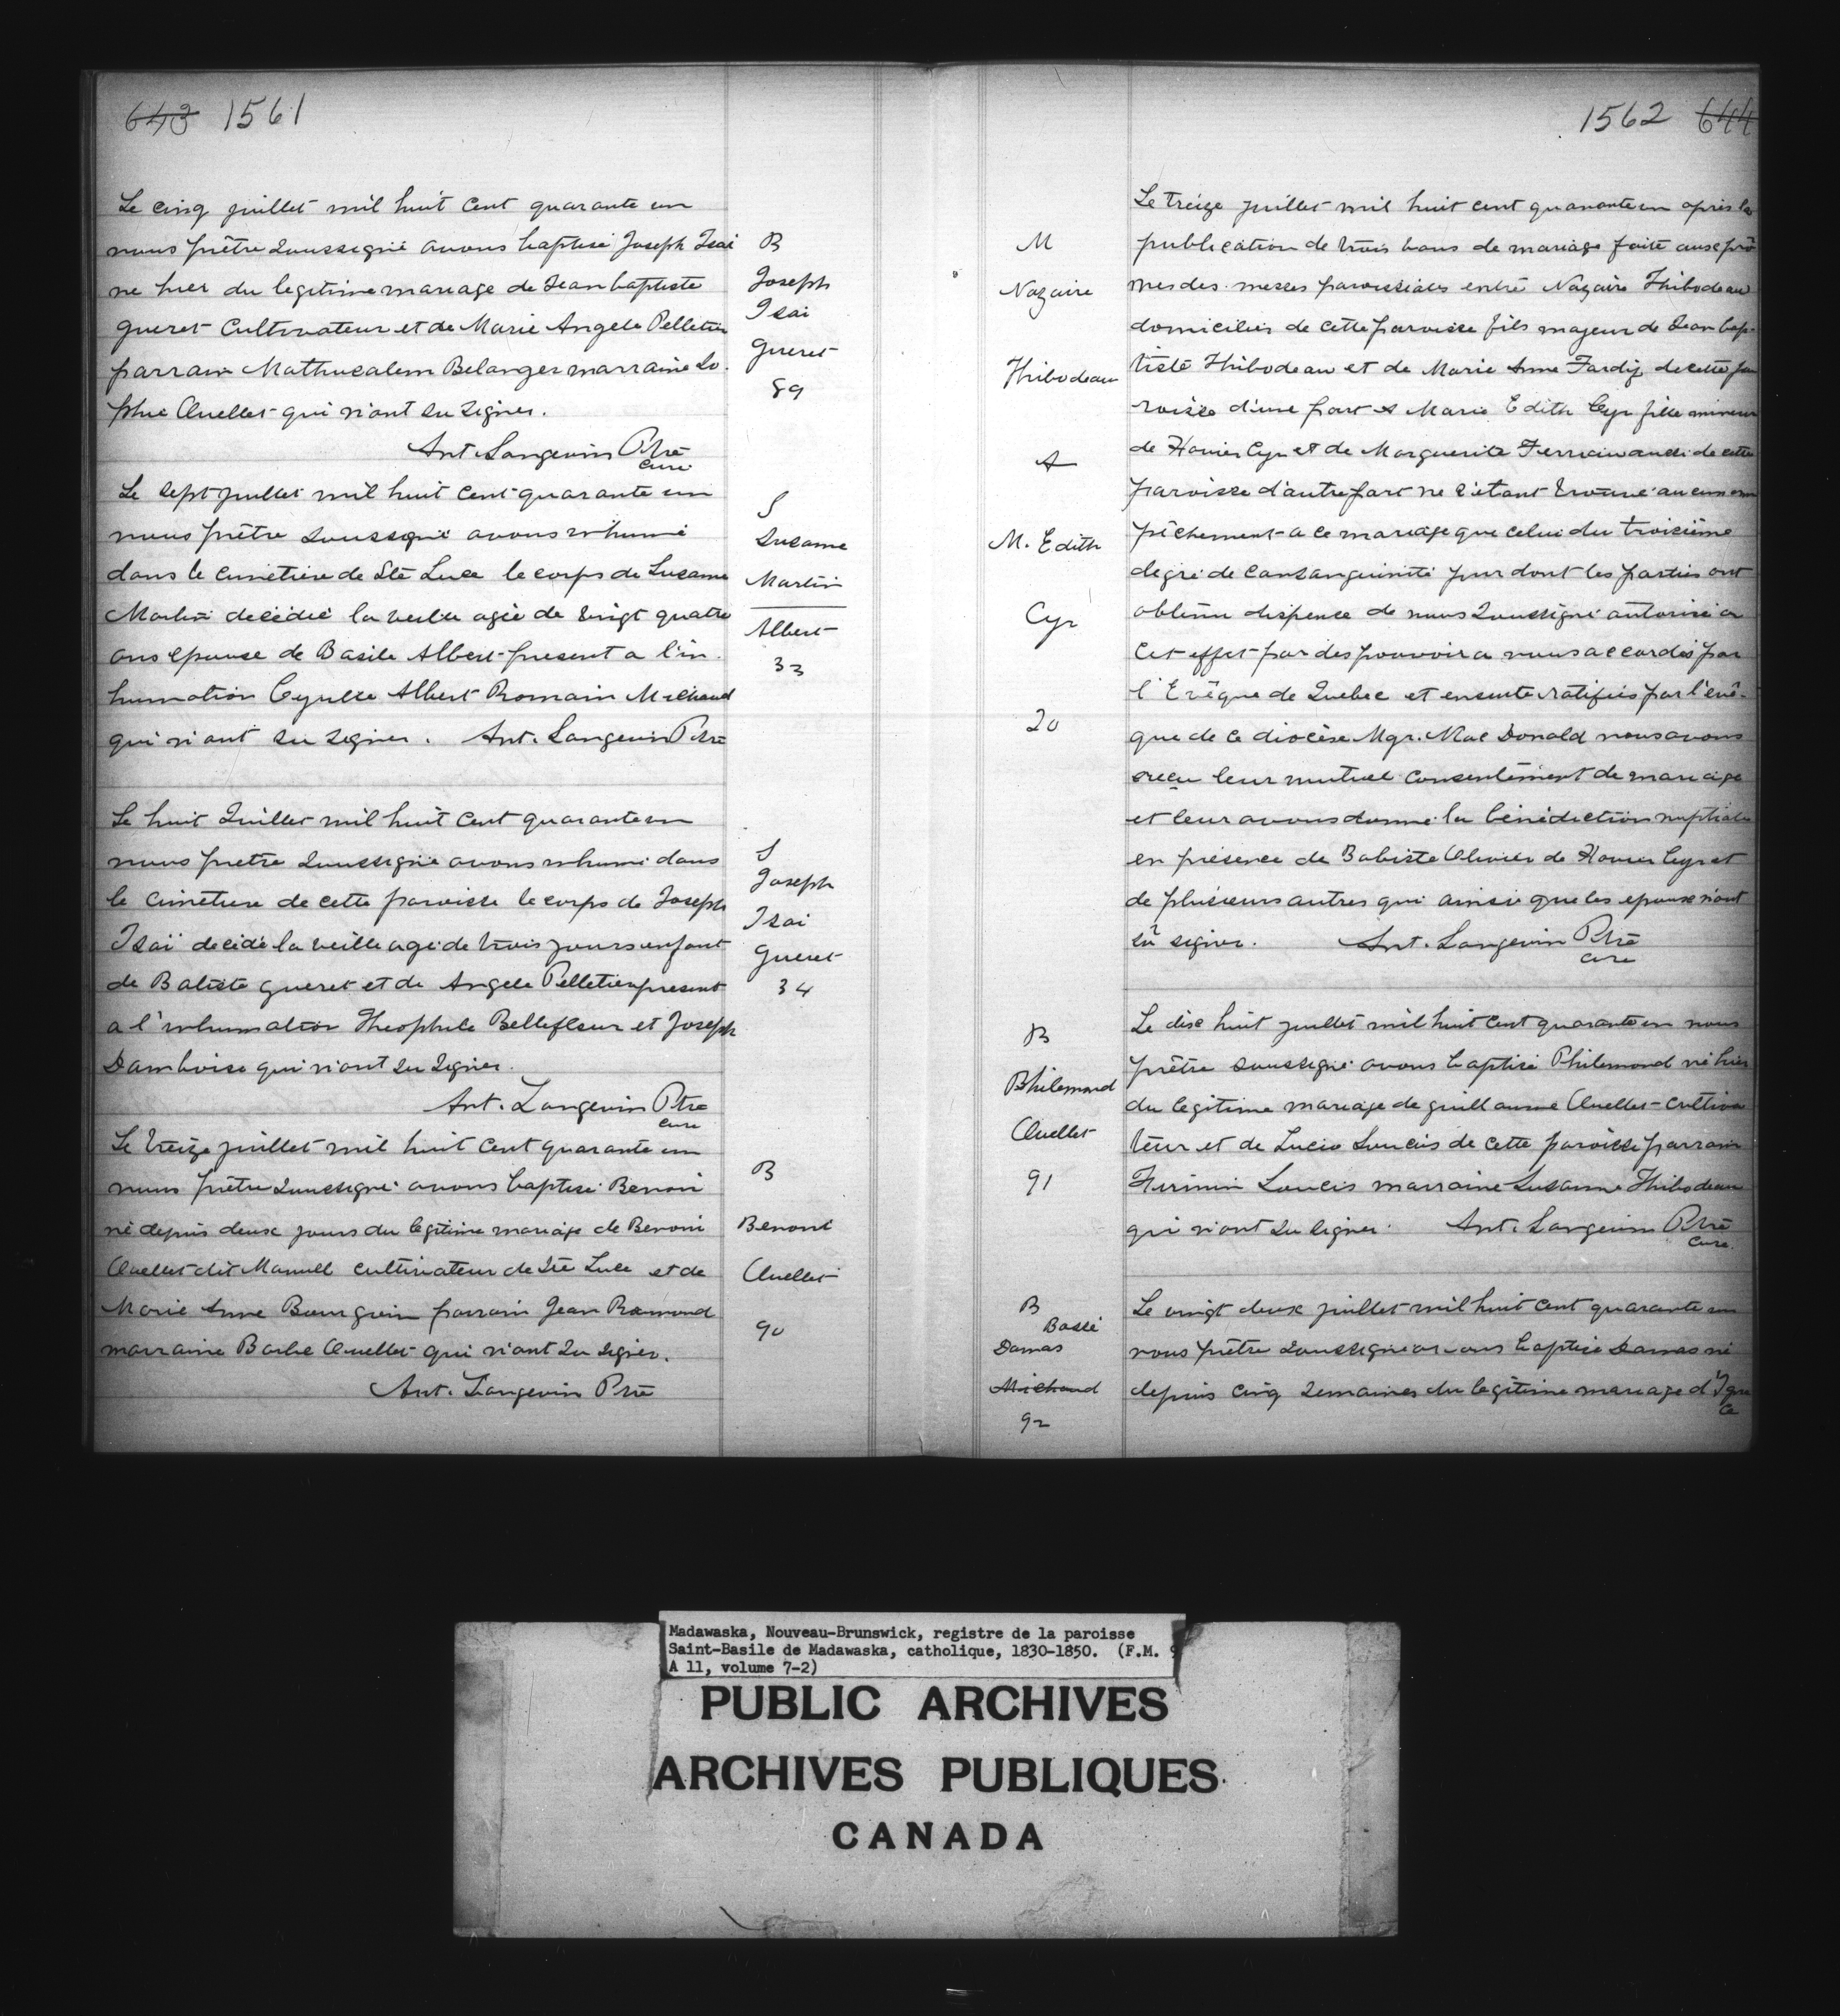 643 1561
Le cinq juillet mil huit cent quarante un
nous prêtre soussigné avons baptisé Joseph Isai
ne hier du legitime mariage de Jean baptiste
gueret Cultivateur et de Marie Angele Pelletier
parrain Mathusalem Belanger marraine So.
phie Ouellet qui n'ont su signer.
Ant. Langevin Ptre
curé
B
Joseph
Isai
gueret
89
Le sept juillet mil huit cent quarante un
nous prêtre soussigné avons inhumé
dans le cimetière de Ste Luce le corps de Susanne
Martin décédée la veille agée de vingt quatre
ans epouse de Basile Albert present a l'in.
humation Cyrille Albert Romain Michaud
qui n'ont su signer. Ant. Langevin Ptre
S
Susanne
Martin
Albert
33
Le huit Juillet mil huit cent quarante un
nous pretre soussigné avons inhumé dans
le cimetiere de cette paroisse le corps de Joseph
Isaï decidé la veille agé de trois jours enfant
de Batiste gueret et de Angele Pelletier present
a l'inhumation Theophile Bellefleur et Joseph
Damboise qui n'ont su signer.
Ant. Langevin Ptre
curé
S
Joseph
Isai
gueret
34
Le treize juillet mil huit cent quarante un
nous prêtre soussigné avons baptisé Benoni
né depuis deux jours du legitime mariage de Benoni
Ouellet dit Manuell cultivateur de Ste Luce et de
Marie Anne Bourgoin parrain Jean Raimond
marraine Barbe Ouellet qui n'ont su signer.
Ant. Langevin Ptre
B
Benoni
Ouellet
90
1562 644
Le treize juillet mil huit cent quarante un après la
publication de trois bans de mariage faite aux prô
nes des messes paroissiales entre Nazaire Thibodeau
domicilié de cette paroisse fils majeur de Jean bap-
tiste Thibodeau et de Marie Anne Tardif de cette pa
roisse d'une part & Marie Edith Cyr fille mineur
de Havier Cyr et de Marguerite Terriau aussi de cette
paroisse d'autre part ne s'etant trouvé aucun em
pêchement a ce mariage que celui du troisième
degré de consanguinité pur dont les parties ont
obtenu dispense de nous soussigné autorisé a
cet effet par des pouvoirs a nous accordés par
l'Evêque de Quebec et ensuite ratifiés par l'evê-
que de ce diocèse Mgr. Mac Donald nous avons
reçu leur mutuel consentement de mariage
et leur avons donné la bénédiction nuptiale
en présence de Babiste Olivier de Havier Cyr et
de plusieurs autres qui ainsi que les epoux n'ont
su signer. Ant. Langevin Ptre
curé
M
Nazaire
Thibodeau
&
M. Edith
Cyr
20
Le dix huit juillet mil huit cent quarante un nous
prêtre soussigné avons baptisé Philemond né hier
du legitime mariage de guillaume Ouellet cultiva
teur et de Lucie Soucis de cette paroisse parrain
Firmin Soucis marraine Susanne Thibodeau
qui n'ont su signer. Ant. Langevin Ptre
curé.
B
Philemond
Ouellet
91
Le vingt deux juillet mil huit cent quarante un
nous prêtre soussigné avons baptisé Damas né
depuis cinq semaines du legitime mariage d'Igna
ce
B
Bossé
Damas
Michaud
92
Madawaska, Nouveau-Brunswick, registre de la paroisse
Saint-Basile de Madawaska, catholique, 1830-1850. (F.M. 9
A 11, volume 7-2)
PUBLIC ARCHIVES
ARCHIVES PUBLIQUES
CANADA